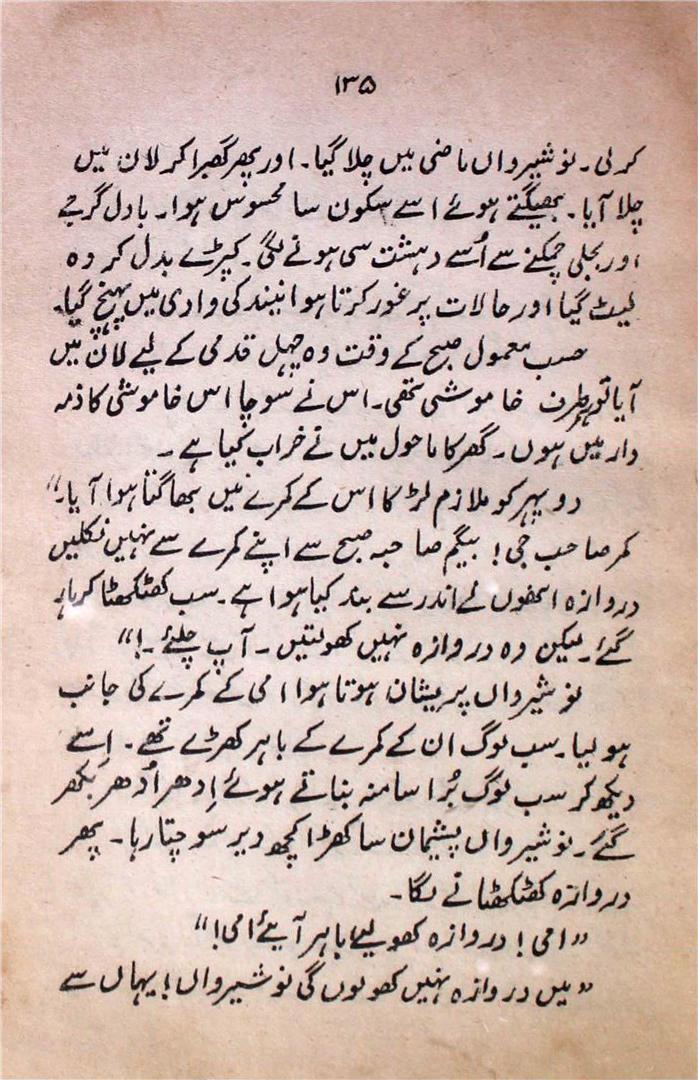 ۱۳۵
کر لی۔ نوشیرواں ماضی میں چلا گیا۔ اور پھر گھبرا کر لان میں
چلا آیا۔ بھیگتے ہوئے اسے سکون سا محسوس ہوا۔ بادل گرجے
اور بجلی چمکنے سے اُسے دہشت سی ہونے لگی۔ کپڑے بدل کر وہ
لیٹ گیا اور حالات پر غور کرتا ہوا نیند کی وادی میں پہنچ گیا۔
حسب معمول صبح کے وقت وہ چہل قدمی کے لیے لان میں
آیا تو ہر طرف خاموشی تھی۔ اس نے سوچا اس خاموشی کا ذمہ
دار میں ہوں۔ گھر کا ماحول میں نے خراب کیا ہے ۔
دوپہر کو ملازم لڑکا اس کے کمرے میں بھاگتا ہوا آیا۔"
کمر صاحب جی! بیگم صاحبہ صبح سے اپنے کمرے سے نہیں نکلیں
دروازہ انھوں نے اندر سے بند کیا ہوا ہے۔ سب کھٹکھٹا کر ہار
گئے۔ لیکن وہ دروازہ نہیں کھولتیں ۔ آپ چلئے ۔!"
نوشیرواں پریشان ہوتا ہوا امی کے کمرے کی جانب
ہو لیا۔ سب لوگ ان کے کمرے کے باہر کھڑے تھے۔ اِسے
دیکھ کر سب لوگ بُرا سا منہ بناتے ہوئے اِدھر اُدھر بکھر
گئے۔ نوشیرواں پشیمان سا کھڑا کچھ دیر سوچتا رہا۔ پھر
دروازہ کھٹکھٹانے لگا۔
"امی! دروازہ کھولیے باہر آیئے امی!"
"میں دروازہ نہیں کھولوں گی نوشیرواں! یہاں سے